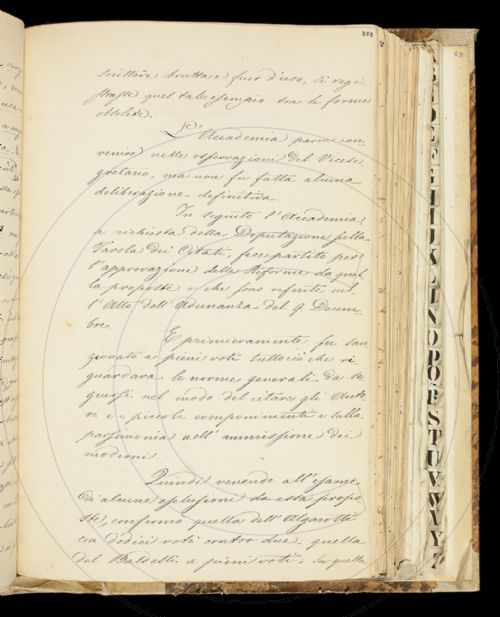 scrittore brutta e fuor d'uso, si regi-
strasse quel tale esempio tra le forme
obsolete.
L'Accademia parve con-
venire nelle osservazioni del Vicese-
gretario, ma non fu fatta alcuna
deliberazione definitiva.
In seguito l'Accademia,
a richiesta della Deputazione sulla
Tavola dei Citati, fece partito per
l'approvazione delle Riforme da quel-
la proposte e che sono riferite nel-
l'Atto dell'Adunanza del 9. Decem-
bre.
E primieramente fu san-
zionato a pieni voti tuttociò che ri-
guardava le norme generali da se-
guirsi nel modo del citare gli Auto-
ri e i piccoli componimenti e sulla
parsimonia nell'ammissione dei
moderni.
Quindi venendo all'esame
di alcune esclusioni da essa propo-
ste, confermò quella dell'Algarotti
con dodici voti contro due; quella
del Baldelli a pieni voti. Su quella